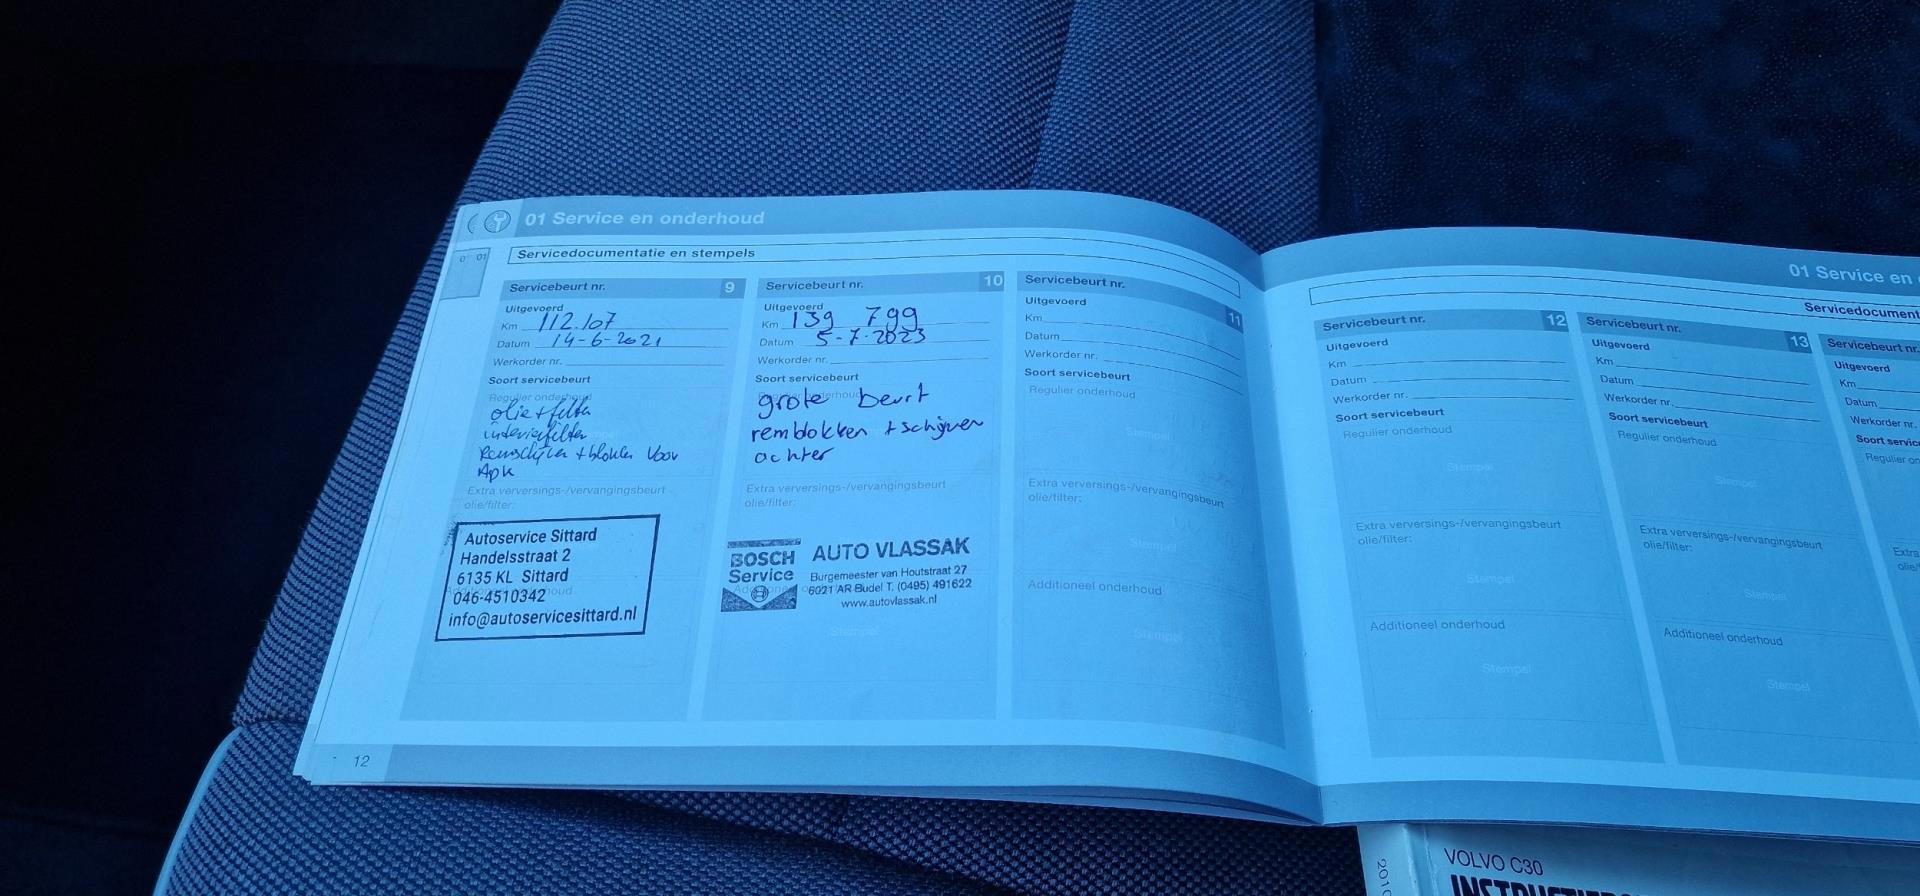 01 Service en onderhoud
01
Servicedocumentatie en stempels
Servicebeurt nr. 9
Uitgevoerd
Km 112.107
Datum 14-6-2021
Werkorder nr.
Soort servicebeurt
Regulier onderhoud
olie + filter
interieurfilter
Remschijven + blokken Voor
Apk
Extra verversings-/vervangingsbeurt
olie/filter:
Autoservice Sittard
Handelsstraat 2
6135 KL Sittard
046-4510342
info@autoservicesittard.nl
Servicebeurt nr. 10
Uitgevoerd
Km 139 799
Datum 5-7-2023
Werkorder nr.
Soort servicebeurt
grote beurt
remblokken + schijven
achter
Extra verversings-/vervangingsbeurt
olie/filter:
BOSCH
Service
AUTO VLASSAK
Burgemeester van Houtstraat 27
6021 AR Budel T. (0495) 491622
www.autovlassak.nl
Stempel
Servicebeurt nr. 11
Uitgevoerd
Km
Datum
Werkorder nr.
Soort servicebeurt
Regulier onderhoud
Stempel
Extra verversings-/vervangingsbeurt
olie/filter:
Stempel
Additioneel onderhoud
Stempel
12
01 Service en
Servicedocument
Servicebeurt nr. 12
Uitgevoerd
Km
Datum
Werkorder nr.
Soort servicebeurt
Regulier onderhoud
Stempel
Extra verversings-/vervangingsbeurt
olie/filter:
Stempel
Additioneel onderhoud
Stempel
Servicebeurt nr. 13
Uitgevoerd
Km
Datum
Werkorder nr.
Soort servicebeurt
Regulier onderhoud
Stempel
Extra verversings-/vervangingsbeurt
olie/filter:
Stempel
Additioneel onderhoud
Stempel
Servicebeurt nr.
Uitgevoerd
Km
Datum
Werkorder nr.
Soort service
Regulier on
Extra
olie
VOLVO C30